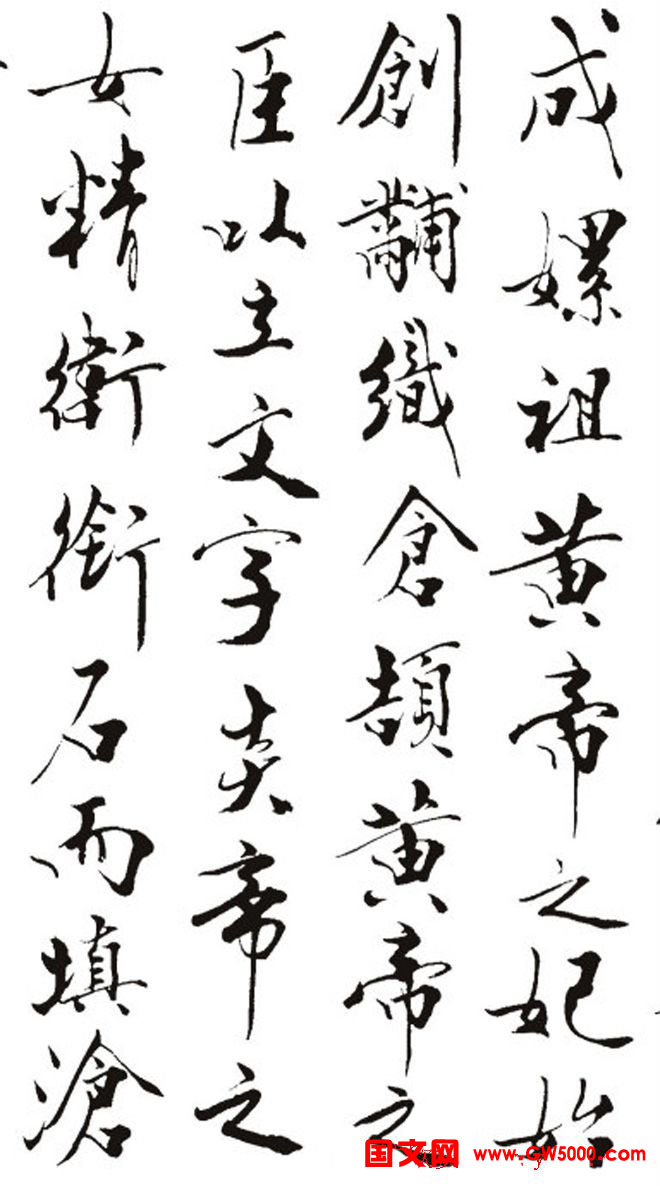 成嫘祖黄帝之妃始
創黼織倉頡黄帝之
臣以立文字炎帝之
女精衛銜石而填滄
国文网 www.GW5000.com